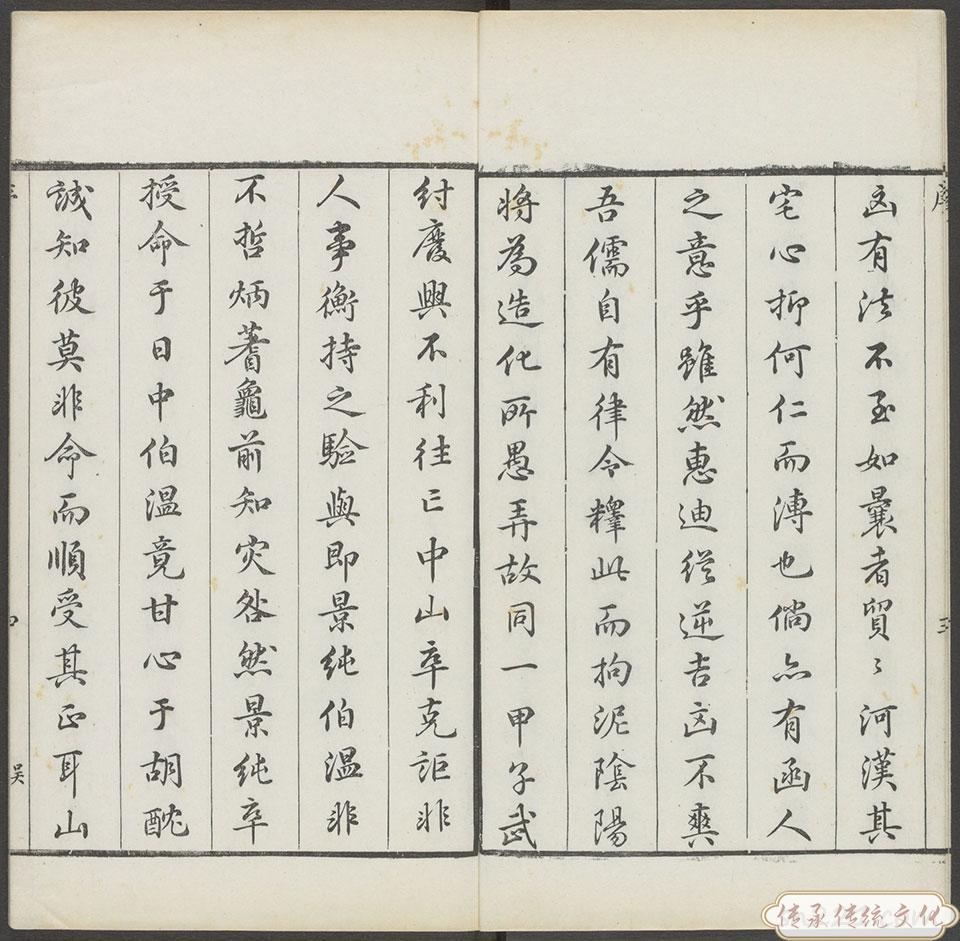 凶有法不至如曩者貿〻河漢其
宅心抑何仁而溥也倘亦有函人
之意乎雖然惠迪從逆吉凶不爽
吾儒自有律令釋此而拘泥陰陽
將為造化所愚弄故同一甲子武
紂廢興不利往亡中山卒克詎非
人事衡持之驗與即景純伯溫非
不哲炳蓍龜前知灾咎然景純卒
授命于日中伯溫竟甘心于胡酖
誠知彼莫非命而順受其正耳山
吳
传承传统文化